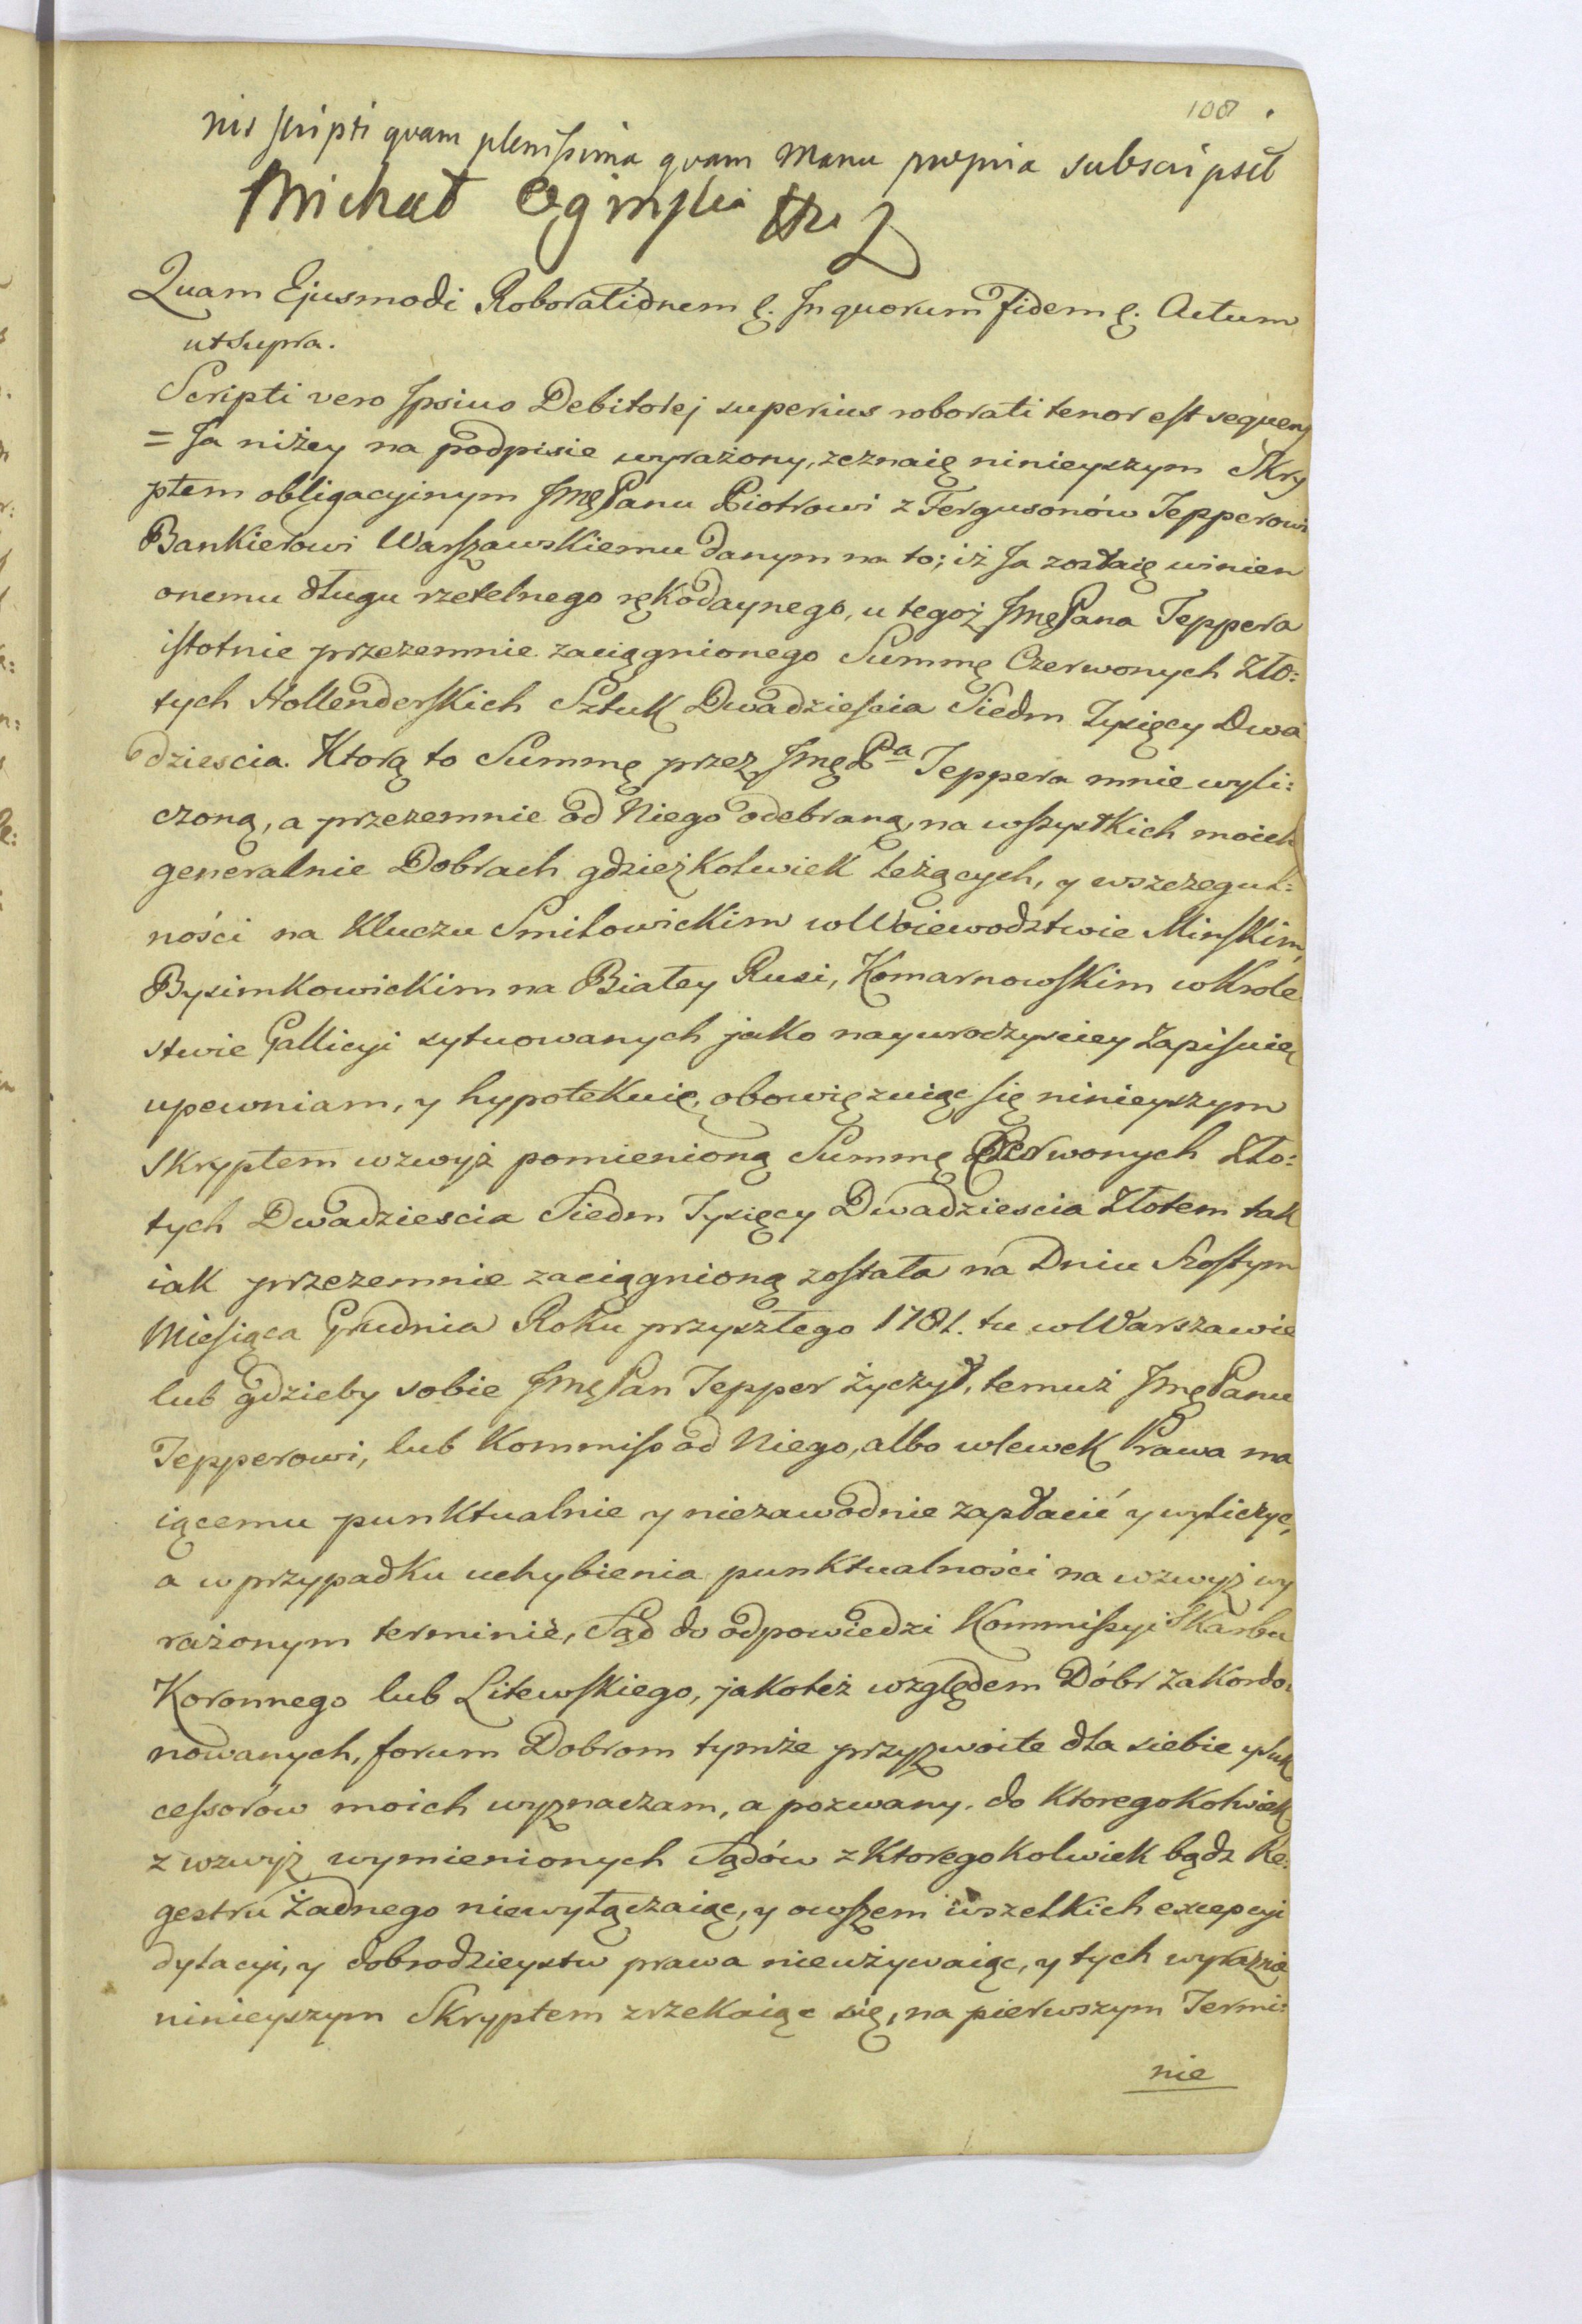 108
nis scripti quam plenissima quam manu propria subscripsit
Michał Ogiński
Quam Ejusmodi Roborationem &. In quorum fidem &. Actum
ut supra.
Scripti vero Ipsius Debitorej superius roborati tenor est sequens
= Ja niżey na podpisie wyrażony, zeznaię ninieyszym Skry
ptem obligacyinym JmęPanu Piotrowi z Fergusonów Tepperowi
Bankierowi Warszawskiemu danym na to; iż Ja zostaię winien
onemu długu rzetelnego rękodaynego, u tegoż JmęPana Teppera
istotnie przezemnie zaciągnionego Summę Czerwonych Zło:
tych Hollenderskich Sztuk Dwadziescia Siedm Tysięcy Dwa
dziescia. Ktorą to Summę przez Jmę Pa Teppera mnie wyli:
czoną, a przezemnie od Niego odebraną, na wszystkich moich
generalnie Dobrach gdzieżkolwiek leżących, y wszczegul:
ności na Kluczu Smiłowickim w Woiewodztwie Minskim,
Byszimkowickim na Białey Rusi, Komarnowskim w Krole
stwie Gallicyi sytuowanych jako nayuroczysciey Zapisuię
upewniam, y hypotekuię, obowięzuiąc się ninieyszym
Skryptem wzwyż pomienioną Summę Czerwonych Zło:
tych Dwadziescia Siedm Tysięcy Dwadziescia Złotem tak
iak przezemnie zaciągnioną została na Dniu Szostym
Miesiąca Grudnia Roku przyszłego 1781. tu w Warszawie
lub gdzieby sobie JmęPan Tepper życzył, temuż JmęPanu
Tepperowi, lub Kommiss od Niego, albo wlewek Prawa ma
iącemu punktualnie y niezawodnie zapłacić y wyliczyc,
a w przypadku uchybienia punktualności na wzwyż wy
rażonym terminie, Sąd do odpowiedzi Kommissyi Skarbu
Koronnego lub Litewskiego, jakoteż względem Dóbr zakordo:
nowanych, forum Dobrom tymże przyzwoite dla siebie y Suk
cessorów moich wyznaczam, a pozwany do ktoregokolwiek
z wzwyż wymienionych Sądów z ktoregokolwiek bądz Re:
gestru żadnego niewyłączaiąc, y owszem wszelkich excepcyi
dylacyi, y dobrodzieystw prawa nieużywaiąc, y tych wyraznie
ninieyszym Skryptem zrzekaiąc się, na pierwszym Termi:
nie